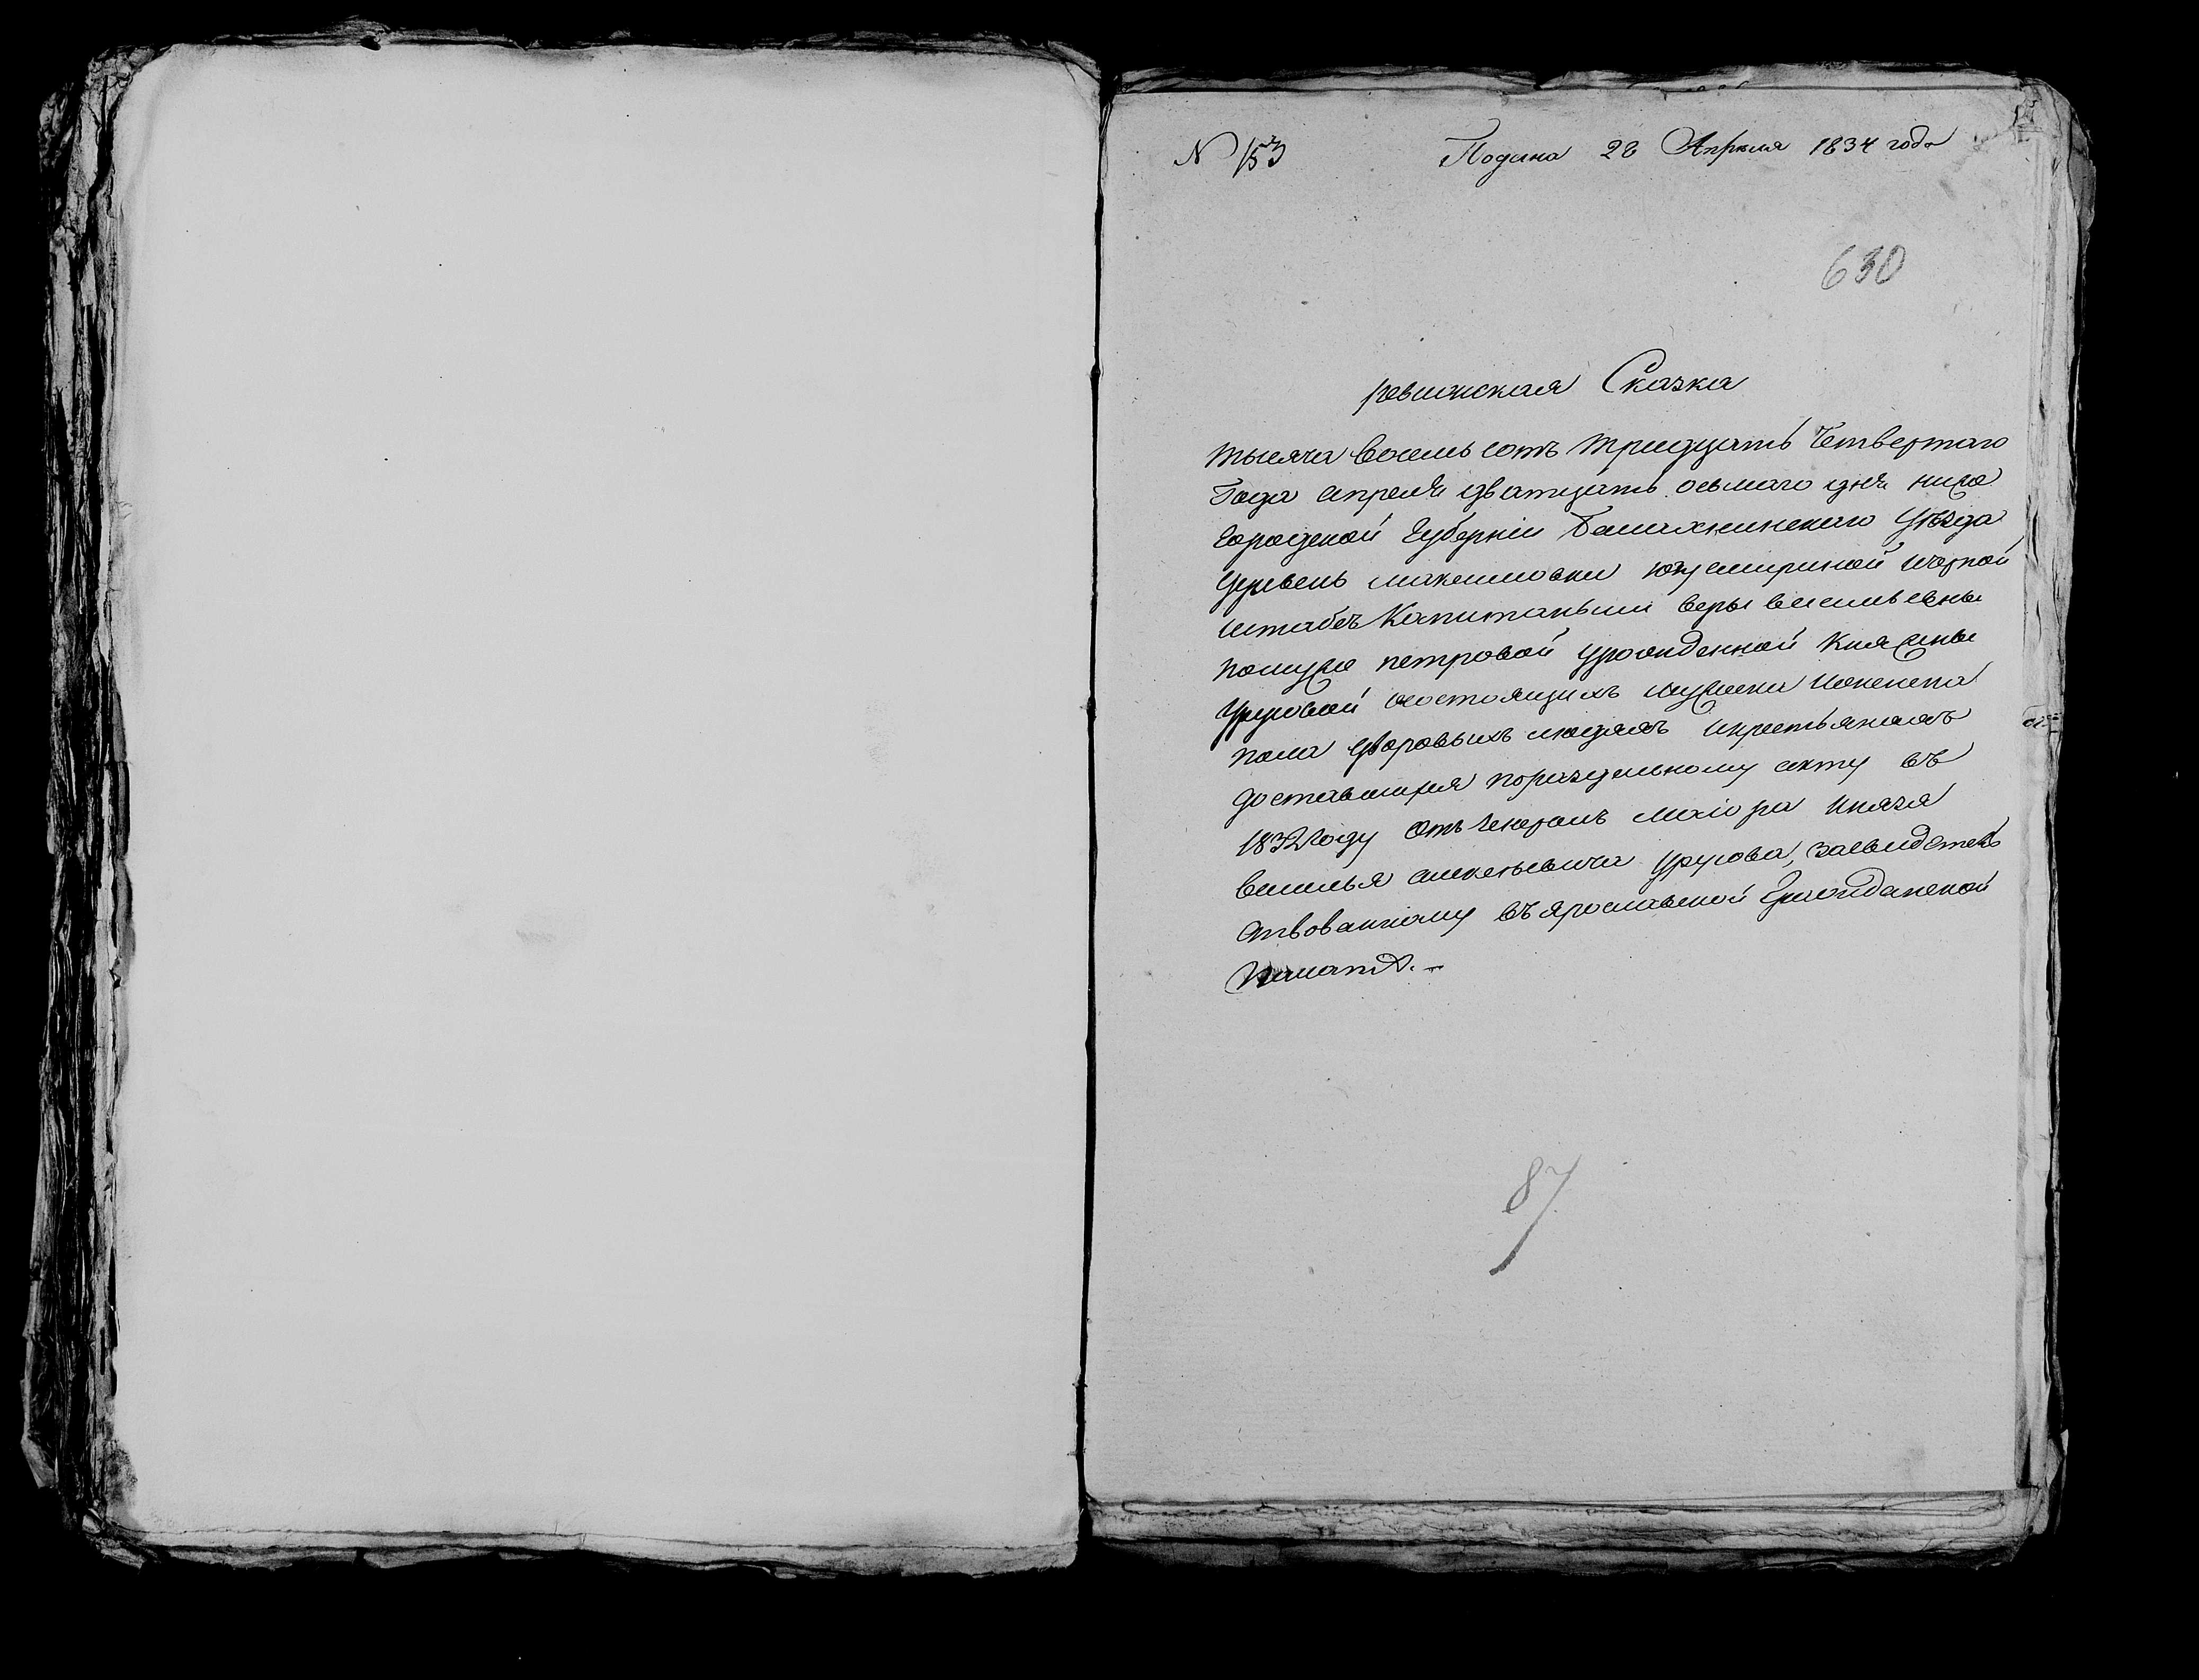 N 153 Подана 28 Апреля 1834 года
630
ревижская Сказка
тысяча восемь сотъ тридцать Четвертаго
Года апреля дватцать осьмаго дня ниже
городской Губерніи Балахнинскаго Уѣзда
штабсъ Капитанши веры васильевны
петровой урожденной Княжны
Урусовой состоящихъ мужеска Иженска
пола дворовыхъ людяхъ Икрестьянахъ
доставшихся пораздельному акту въ
1832 году Отъ генералъ маіора князя
василья алексеевича Урусова, засвидетель
ствованному въ ярославской Гражданской
палатѣ. –
87